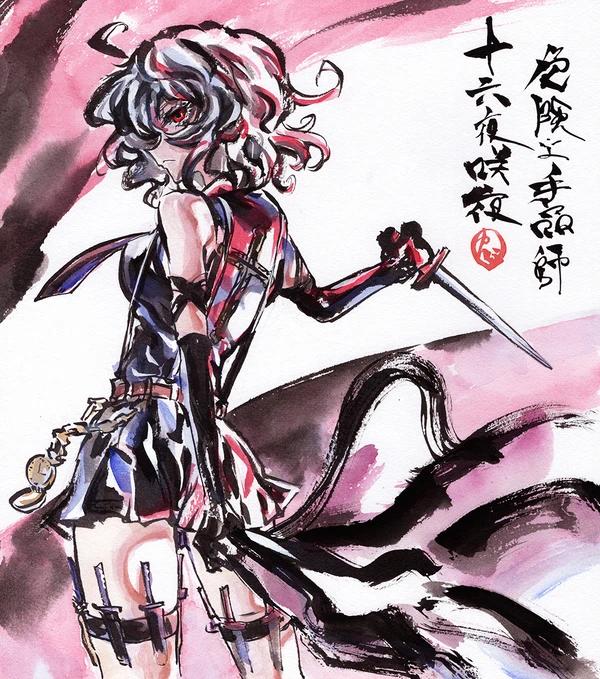 危険な手品師
十六夜咲夜